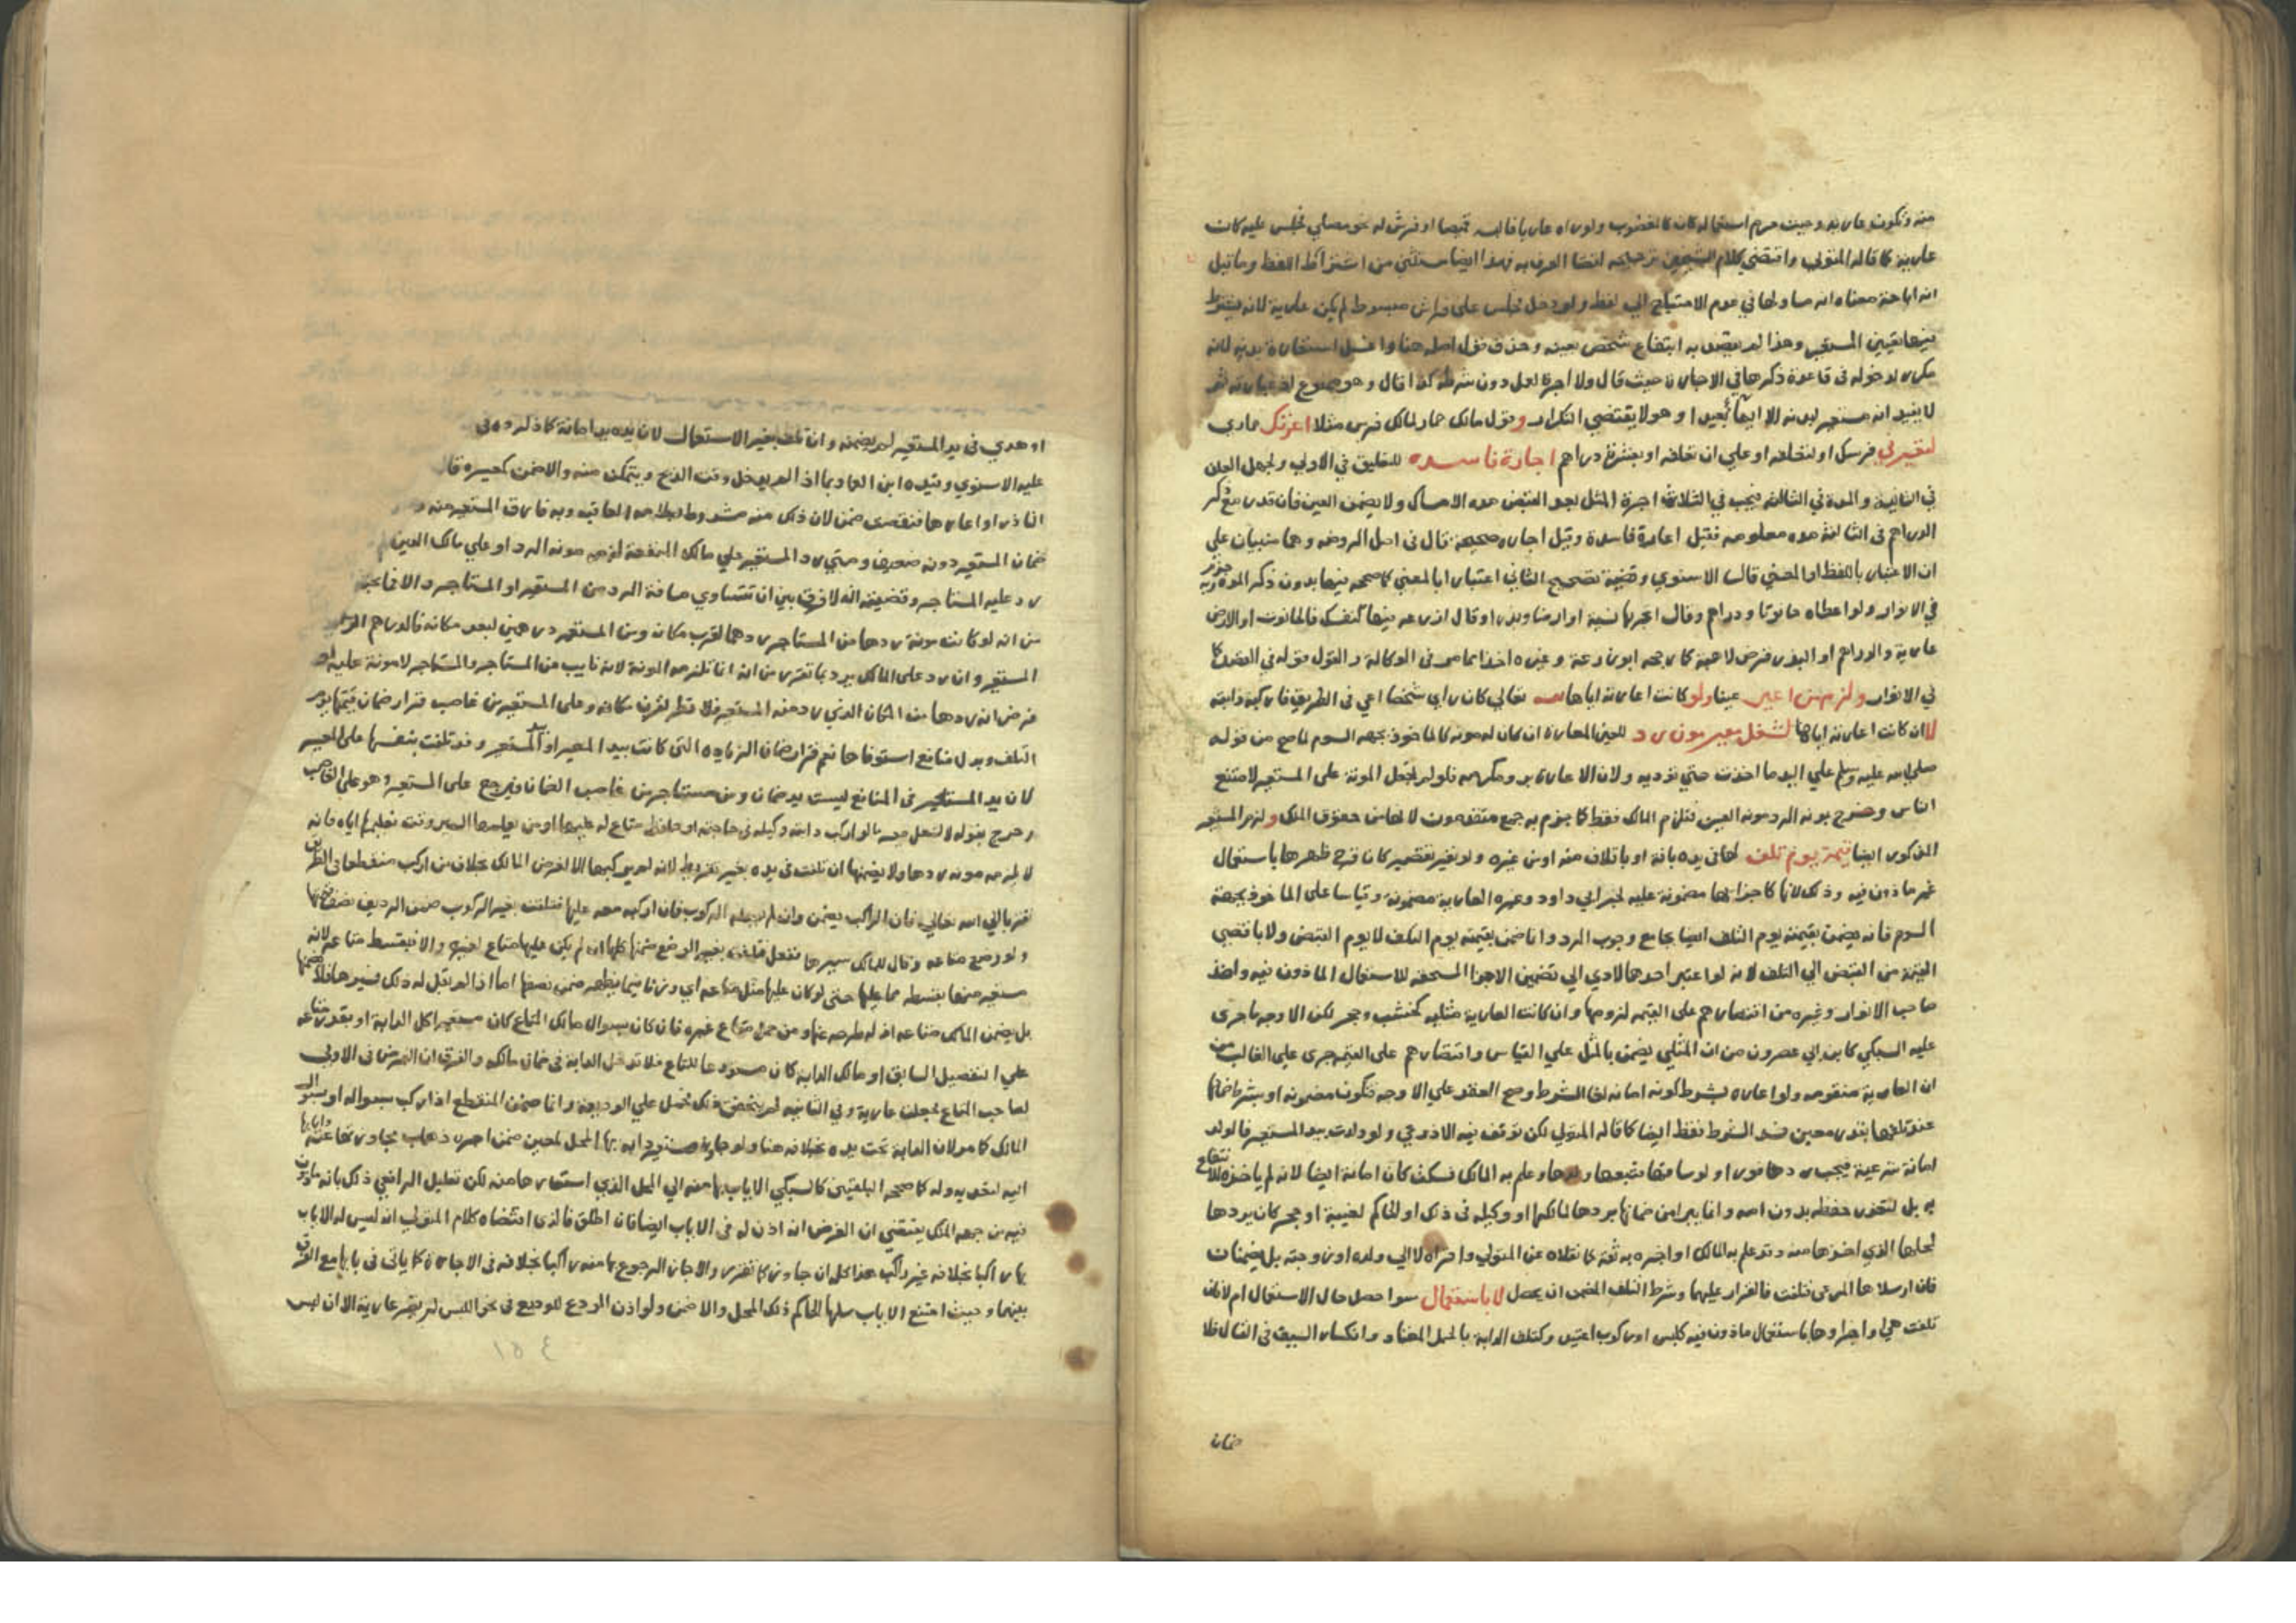 منه وتكون عارية وحيث حرم استعماله كان كالغصوب ولو راه عاريا فالبسه قميصا او فرش له نحو مصلي فجلس عليه كان
عارية كما قاله المتولي واقتضي كلام الشيخين ترجيحه لقضا العرف به فهذا ايضا مستثني من اشتراط اللفظ وما قيل
انه اباحة معناه انه مساو لها في عدم الاحتياج الي لفظ ولو دخل فجلس علي فراش مبسوط لم يكن عارية لانه يشترط
فيها تعيين المستعير وهذا لم يقصد به انتفاع شخص بعينه وحذف قول اصله هنا واغسل استعارة بدنه لانه
مكرر لدخوله في قاعدة ذكرها في الاجارة حيث قال ولا اجرة لعمل دون شرطه كذا قال وهو ممنوع اذ عبارته ثم
لا يفيد انه مستعير لبدنه الا ايماء بعيدا وهو لا يقتضي التكرار وقول مالك حمار لمالك فرس مثلا اعرتك حماري
لتعيرني فرسك او لتعلفه او علي ان تعلفه او بعشرة دراهم اجارة فاسدة للتعليق في الاولي ولجهل العلف
في الثانية والمدة في الثالثة فيجب في الثلاثة اجرة المثل بعد القبض مدة الامساك ولا يضمن العين فان قدر مع ذكر
الدراهم في الثالثة مدة معلومة فقيل اعارة فاسدة وقيل اجارة صحيحة قال في اصل الروضة وهما مبنيان علي
ان الاعتبار باللفظ او المعني قال الاسنوي وقضية تصحيح الثاني اعتبارا بالمعني كما صححه فيها بدون ذكر المدة وبه جزم
في الانوار ولو اعطاه حانوتا ودراهم وقال اتجر بها فيه او ارضا وبذرا وقال ازرعه فيها لنفسك فالحانوت او الارض
عارية والدراهم او البذر قرض لا هبة كما رجحه ابو زرعة وغيره اخذا مما مر في الوكالة والقول قوله في القصد كما
في الانوار ولزم من اعير عينا ولو كانت اعارته اياها لله تعالي كان راي شخصا اعي في الطريق فاركبه دابته
لا ان كانت اعارته اياها لشغل معير مون رد للعين المعارة ان كان له مونة كالماخوذ بجهة السوم لما صح من قوله
صلي الله عليه وسلم علي اليد ما اخذت حتي توديه ولان الاعارة بر ومكرمة فلو لم تجعل المونة علي المستعير لامتنع
الناس وخرج بمونة الرد مونة العين فتلزم المالك فقط كما جزم به جمع متقدمون لانها من حقوق الملك ولزم المستعير
المذكور ايضا قيمة يوم تلف لها في يده بافة او باتلاف منه او من غيره ولو بغير تقصير كان قرح ظهرها باستعمال
غير ماذون فيه وذلك لانها كاجزائها مضمونة عليه لخبر ابي داود وغيره العارية مضمونة وقياسا علي الماخوذ بجهة
السوم فانه يضمن بقيمته يوم التلف ايضا بجامع وجوب الرد وانما ضمن بقيمته يوم التلف لا يوم القبض ولا باقصي
القيم من القبض الي التلف لانه لو اعتبر احدهما لادي الي تضمين الاجزا المستحقة للاستعمال الماذون فيه واخذ
صاحب الانوار وغيره من اقتصارهم علي القيمة لزومها وان كانت العارية مثلية كخشب وحجر لكن الاوجه ما جري
عليه السبكي كابن ابي عصرون من ان المثلي يضمن بالمثل علي القياس واقتصارهم علي القيم جري علي الغالب من
ان العارية متقومة ولو اعاره بشرط كونه امانة لغا الشرط وصح العقد علي الاوجه فتكون مضمونة او بشرط ضمانها
عند تلفها بقدر معين فسد الشرط فقط ايضا كما قاله المتولي لكن توقف فيه الاذرعي ولو ولدت بيد المستعير فالولد
امانة شرعية فيجب ردها فورا ولو ساقها فتبعها ولدها وعلم به المالك فسكت كان امانة ايضا لانه لم ياخذه للانتفاع
به بل لتعذر حفظه بدون امه وانما يبرا من ضمانها بردها لمالكها او وكيله في ذلك او الحاكم لغيبة او حجر كان يردها
لمحلها الذي اخذها منه وقد علم به المالك او اخبره به ثقة كما نقلاه عن المتولي واقراه لا الي ولده او زوجته بل يضمنان
فان ارسلاها المرعي فتلفت فالقرار عليهما وشرط التلف المضمن ان يحصل لا باستعمال سوا حصل حال الاستعمال ام لا فان
تلفت هي او اجزاوها باستعمال ماذون فيه كلبس او ركوب اعتيد وكتلف الدابة بالحمل المعتاد وانكسار السيف في القتال فلا
ضمان
او هدي في يد المستعير لم يضمنه وان تلف بغير الاستعمال لان يده يد امانة كما ذكروه في
عليه الاسنوي وقيده ابن العماد بما اذا لم يدخل وقت الذبح ويتمكن منه والا ضمن كغيره قال
الناذر او اعارها فنقصت ضمن لان ذلك منه مشروط بسلامة العاقبة وبه فارق المستعير منه
ضمان المستعير دونه ضعيف ومتي رد المستعير علي مالك المنفعة لزمه مونة الرد او علي مالك العين
رد عليه المستاجر وقضيته انه لا فرق بين ان تتساوي مسافة الرد من المستعير او المستاجر
من انه لو كانت مونة ردها من المستاجر درهما لقرب مكانه ومن المستعير درهمين لبعد مكانه فالدراهم
المستعير وان رد علي المالك يرد بما تقرر من انه انما تلزمه المونة لانه نايب عن المستاجر والمستاجر لا مونة عليه
فرض انه ردها من المكان الذي رد منه المستعير فلا نظر لقرب مكانه وعلي المستعير من غاصب قرار ضمان قيمتها يوم
التلف وبدل منافع استوفاها نعم قرار ضمان الزيادة التي كانت بيد المعير او المستعير وقد تلفت بنفسها علي المعير
لان يد المستعير في المنافع ليست يد ضمان ومن مستاجر من غاصب الضمان ويرجع علي المستعير وهو علي الغاصب
وخرج بقوله لا لشغل معير ما لو اركب دابته وكيله في حاجته او حافظ متاع له عليها او من يعلمها السير وقت تعليمها اياه فانه
لا يلزمه مونة ردها ولا يضمنها ان تلفت في يده بغير تفريط لانه لم يركبها الا لغرض المالك بخلاف من اركب منقطعا في الطريق
تقربا الي الله تعالي فان الراكب يضمن وان لم يساله الركوب فان اركبه معه عليها فتلفت بغير الركوب ضمن الرديف نصفها
ولو وضع متاعه وقال للمالك سيرها ففعل فتلفت بغير الوضع ضمنها كلها ان لم يكن عليها متاع لغيره والا فبقسط متاعه لانه
مستعير منها بقسطه مما عليها حتي لو كان عليها مثل متاعه ضمن نصفها اما اذا لم يقل له ذلك فسيرها فلا يضمنها
بل يضمن المالك متاعه اذ له طرحه عنها ومن حمل متاع غيره فان كان بسوال مالك المتاع كان مستعيرا كل الدابة او بقدر متاعه
علي التفصيل السابق او مالك الدابة كان مستودعا للمتاع فلا تدخل الدابة في ضمان مالكه والفرق ان الغرض في الاولي
لصاحب المتاع فجعلت عارية وفي الثانية لم يتمحض ذلك فحمل علي الوديعة وانما ضمن المنقطع اذا ركب بسواله او بسوال
المالك كما مر لان الدابة تحت يده بخلافه هنا ولو جاوز مستعير دابة بها المحل المعين ضمن اجرة ذهاب مجاوزتها عنه وايابها
اليه لتعديه وله كما صححه البلقيني كالسبكي الاياب بها منه الي المحل الذي استعارها منه لكن تعليل الرافعي ذلك بانه ماذون
فيه من جهة الملك يقتضي ان الغرض انه اذن له في الاياب ايضا فان اطلق فالذي اقتضاه كلام المتولي انه ليس له الاياب
بها راكبا بخلافه غير راكب هذا كله ان جاوز كما تقرر والا جاز الرجوع بها منه راكبا بخلافه في الاجارة كما ياتي في بابها مع الفرق
بينهما وحيث امتنع الاياب سلمها لحاكم ذلك المحل والا ضمن ولو اذن المودع للوديع في نحو اللبس لم يصر عارية الا ان لبس
١٥٤